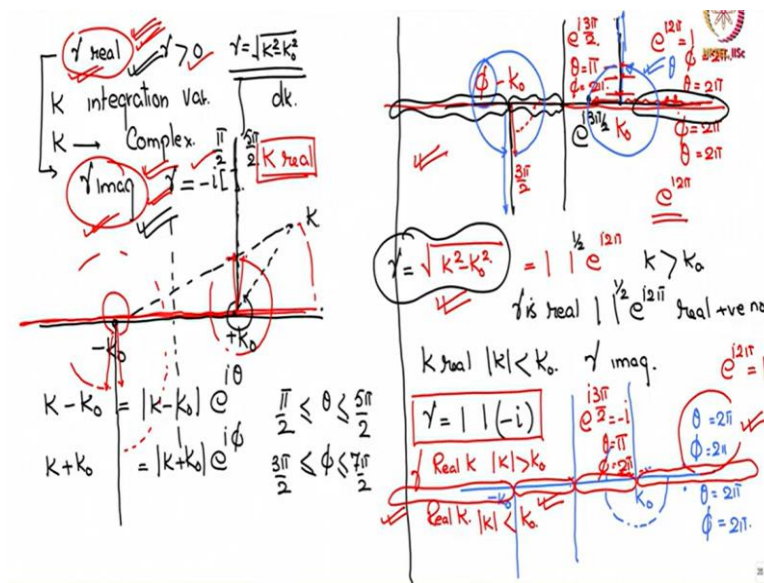 γ real γ>0 γ=√K²-K₀²
K integration var. dk.
K → Complex.
π/2 5π/2
K real
γ imag γ = -i[ ].
K
-K₀ +K₀
K-K₀ = |K-K₀| e^iθ π/2 ≤ θ ≤ 5π/2
K+K₀ = |K+K₀| e^iϕ 3π/2 ≤ ϕ ≤ 7π/2
e^i3π/2 e^i2π=1
θ=π θ ϕ=2π
ϕ=2π θ=2π
ϕ -K₀
K₀
e^i3π/2 ϕ=2π
θ=2π
3π/2
e^i2π
γ = √K²-K₀² = | |^1/2 e^i2π K > K₀
γ is real | |^1/2 e^i2π real +ve no
K real |K|<K₀. γ imag.
γ = | | (-i)
e^i3π/2=-i e^i2π=
θ=π θ=2π
ϕ=2π ϕ=2π
γ Real K |K|>K₀
-K₀ K₀ θ=2π
Real K. |K|<K₀. ϕ=2π.